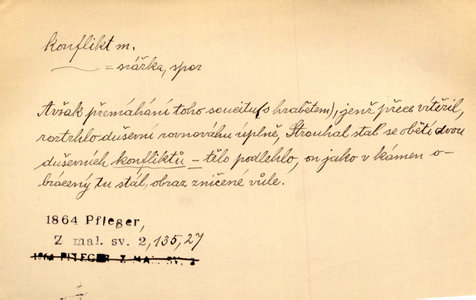 Konflikt m.
= srážka, spor
Avšak přemáhání toho soucitu (s hrabětem), jenž přece vítěřil,
roztrhlo duševní rovnováhu úplně, Strouhal stal se obětí dvou
duševních konfliktů – tělo podlehlo, on jako v kámen o-
brácený tu stál, obraz zničené vůle.
1864 Pfleger,
Z mal. sv. 2, 135, 27
1864 PFLEGER Z MAL. SV. 2